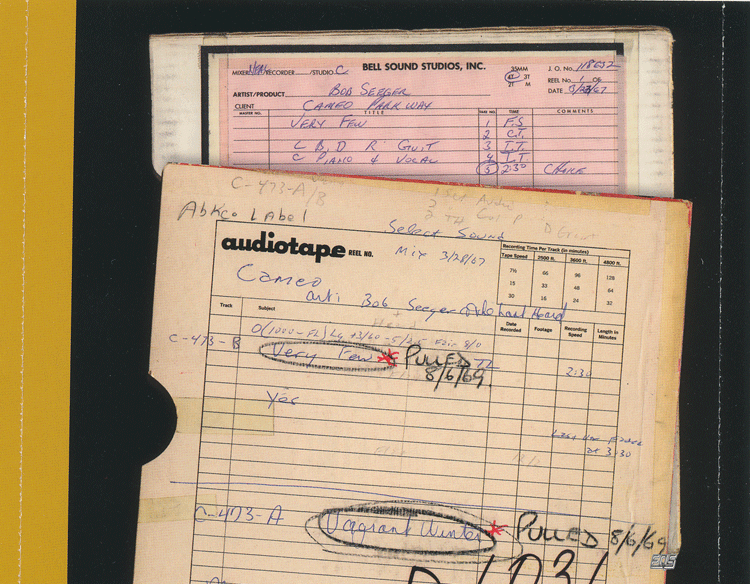 BELL SOUND STUDIOS, INC.
MIXER RECORDER /STUDIO C
35MM
2T 3T
2T M
J. O. No. 118652
REEL No. 1 OF
DATE /67
ARTIST/PRODUCT BOB SEEGER
CLIENT CAMEO PARKWAY
MASTER NO. TITLE TAKE NO. TIME COMMENTS
VERY FEW 1 F.S
2 C.T.
L B, D R GUIT 3 T.T.
C PIANO & VOCAL 4 T.T
5 2:30
C-473-A/B
Abkco Label
Select Sound
audiotape REEL NO. Mix 3/28/67
Recording Time Per Track (in minutes)
Tape Speed 2500 ft. 3600 ft. 4800 ft.
7½ 66 96 128
15 33 48 64
30 16 24 32
Cameo
arti Bob Seeger & the Last Heard
Track Subject Date Recorded Footage Recording Speed Length in Minutes
C-473-B Very Few * PULLED
8/6/69
2:30
Yes
C-473-A Vagrant Winter * PULLED 8/6/69